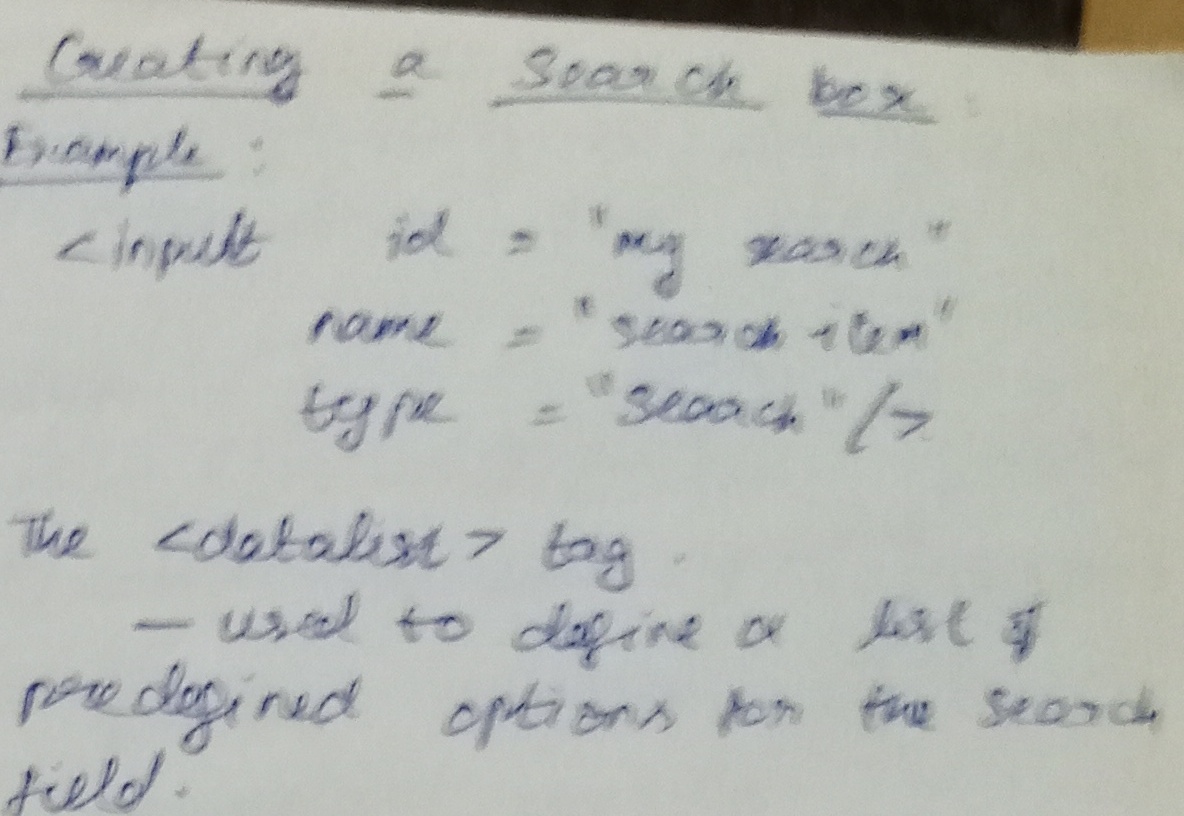 Creating a Search box:
Example:
<input id = "my search"
name = "search item"
type = "search" />
The <datalist> tag.
— used to define a list of
predefined options for the search
field.